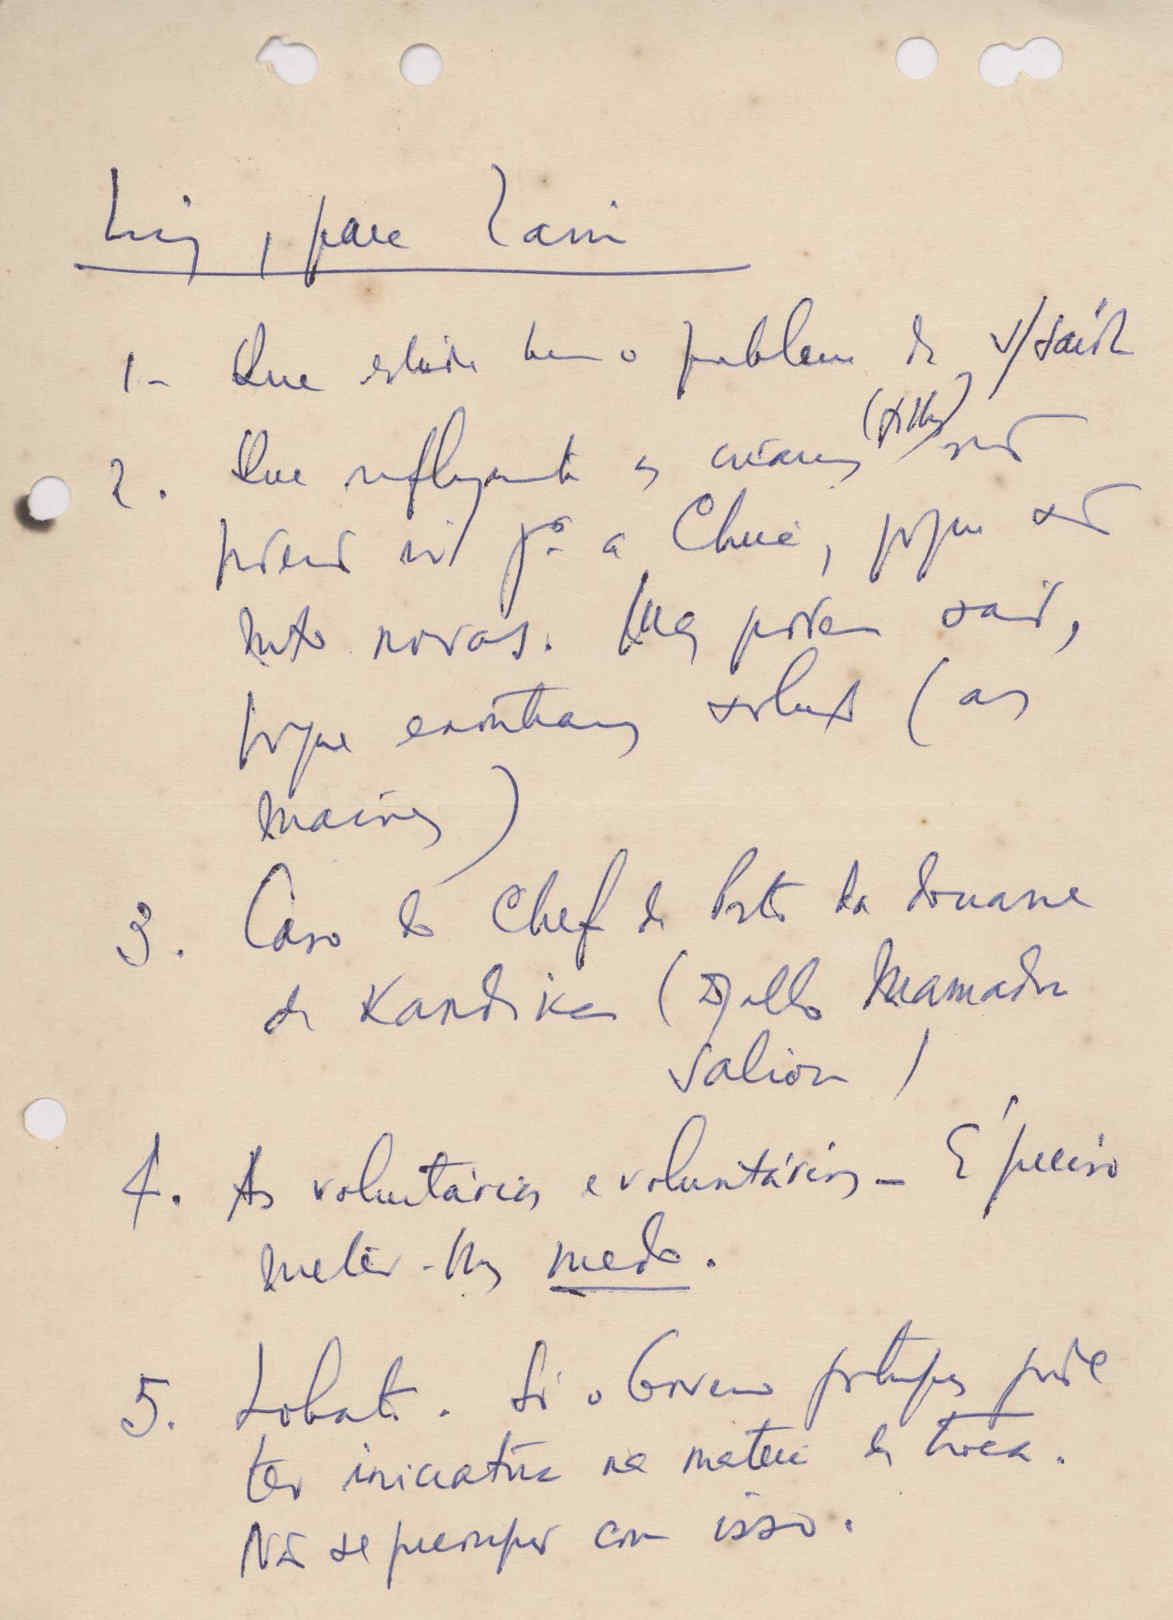 Luiz, para Lami
1- Que estude bem o problema da s/saída
2. Que infelizmente as crianças (filhos) não
podem ir pª a Chine, porque são
muito novas. Mas podem sair,
porque encontramos solução (as
maiores)
3. Caso do Chef de Posto da douane
de Kandika (Djallo Mamadu
Saliou)
4. As voluntárias e voluntários - É preciso
meter-lhes medo.
5. Lobato. Só o Governo português pode
ter iniciativa na matéria da troca.
Não se preocupar com isso.